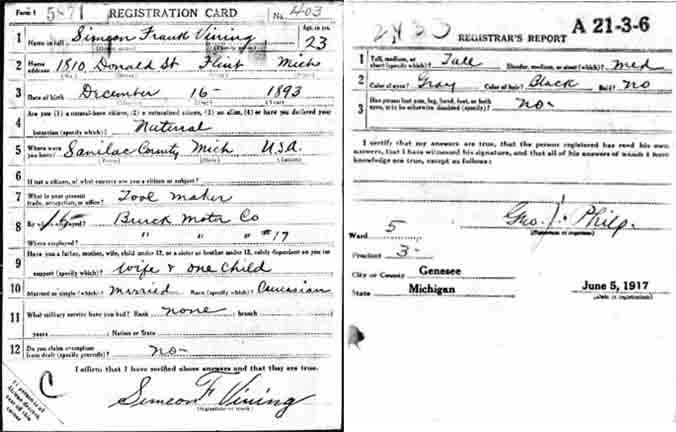 Form 1 5871 REGISTRATION CARD No. 403
1 Name in full Simeon Frank Vining Age, in yrs. 23
2 Home address 1810 Donald St Flint Mich
3 Date of birth December 16 - 1893
4 Are you (1) a natural-born citizen, (2) a naturalized citizen, (3) an alien, (4) or have you declared your
intention (specify which)? Natural
5 Where were you born? Sanilac County Mich U.S.A.
6 If not a citizen, of what country are you a citizen or subject?
7 What is your present trade, occupation, or office? Tool Maker
8 By whom employed? Buick Motor Co
Where employed? " " " #17
9 Have you a father, mother, wife, child under 12, or a sister or brother under 12, solely dependent on you for
support (specify which)? Wife & one child
10 Married or single (which)? Married Race (specify which)? Caucasian
11 What military service have you had? Rank none branch
years Nation or State
12 Do you claim exemption from draft (specify grounds)? no-
I affirm that I have verified above answers and that they are true.
C
Simeon F Vining
(Signature or mark)
If person is of African descent, tear off this corner
REGISTRAR'S REPORT A 21-3-6
1 Tall, medium, or short (specify which)? Tall Slender, medium, or stout (which)? Med
2 Color of eyes? Gray Color of hair? Black Bald? No
3 Has person lost arm, leg, hand, foot, or both eyes, or is he otherwise disabled (specify)? no-
I certify that my answers are true, that the person registered has read his own
answers, that I have witnessed his signature, and that all of his answers of which I have
knowledge are true, except as follows:
Geo. J. Philp.
(Signature of registrar)
Ward 5
Precinct 3-
City or County Genesee
State Michigan June 5, 1917
(Date of registration)